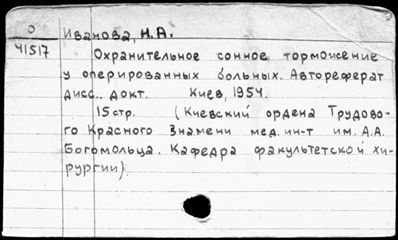 О
41517
Иванова, Н.А.
Охранительное сонное торможение
у оперированных больных. Автореферат
дисс.. докт. Киев, 1954.
15 стр. (Киевский ордена Трудово-
го Красного Знамени мед. ин-т им. А.А.
Богомольца. Кафедра факультетской хи-
рургии).